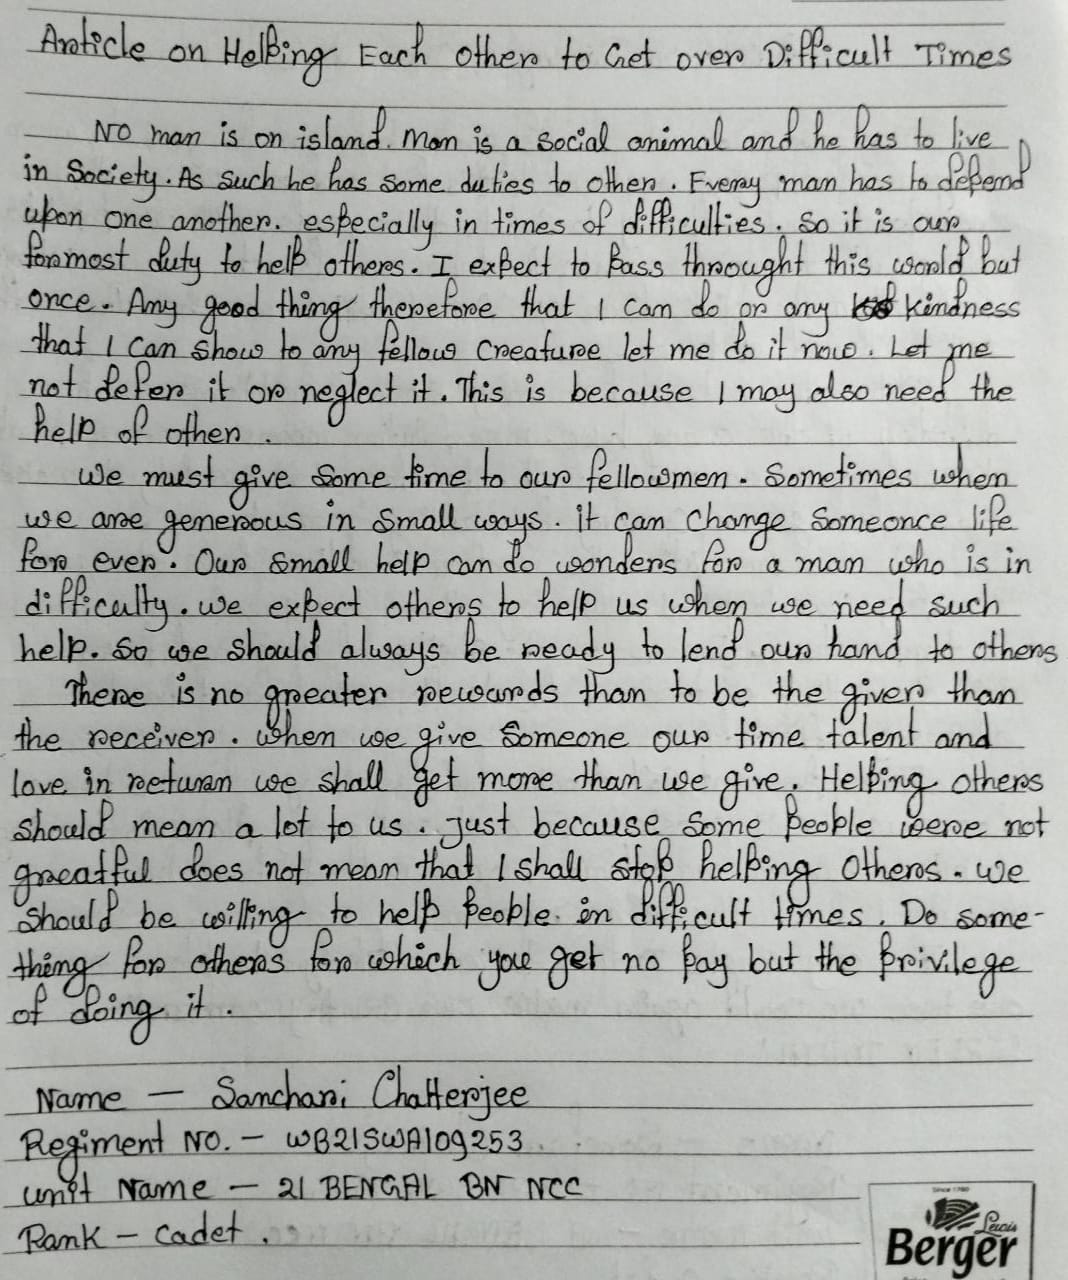 Article on Helping Each Other to Get over Difficult Times
No man is on island. Man is a social animal and he has to live
in Society. As such he has some duties to other. Every man has to depend
upon one another. especially in times of difficulties. So it is our
formost duty to help others. I expect to pass throught this world but
once. Any good thing therefore that I can do or any kindness
that I can show to any fellow creature let me do it now. Let me
not defer it or neglect it. This is because I may also need the
help of other.
We must give some time to our fellowmen. Sometimes when
we are generous in small ways. it can change someonce life
for ever. Our small help can do wonders for a man who is in
difficulty. we expect others to help us when we need such
help. So we should always be ready to lend our hand to others
There is no greater rewards than to be the giver than
the receiver. when we give someone our time talent and
love in returan we shall get more than we give. Helping others
should mean a lot to us. Just because some people were not
greatful does not mean that I shall stop helping others. we
should be willing to help people in difficult times. Do some-
thing for others for which you get no pay but the privilege
of doing it.
Name - Sanchari Chatterjee
Regiment No. - WB21SWA109253
unit Name - 21 BENGAL BN NCC
Rank - Cadet.
Since 1760
Lewis
Berger